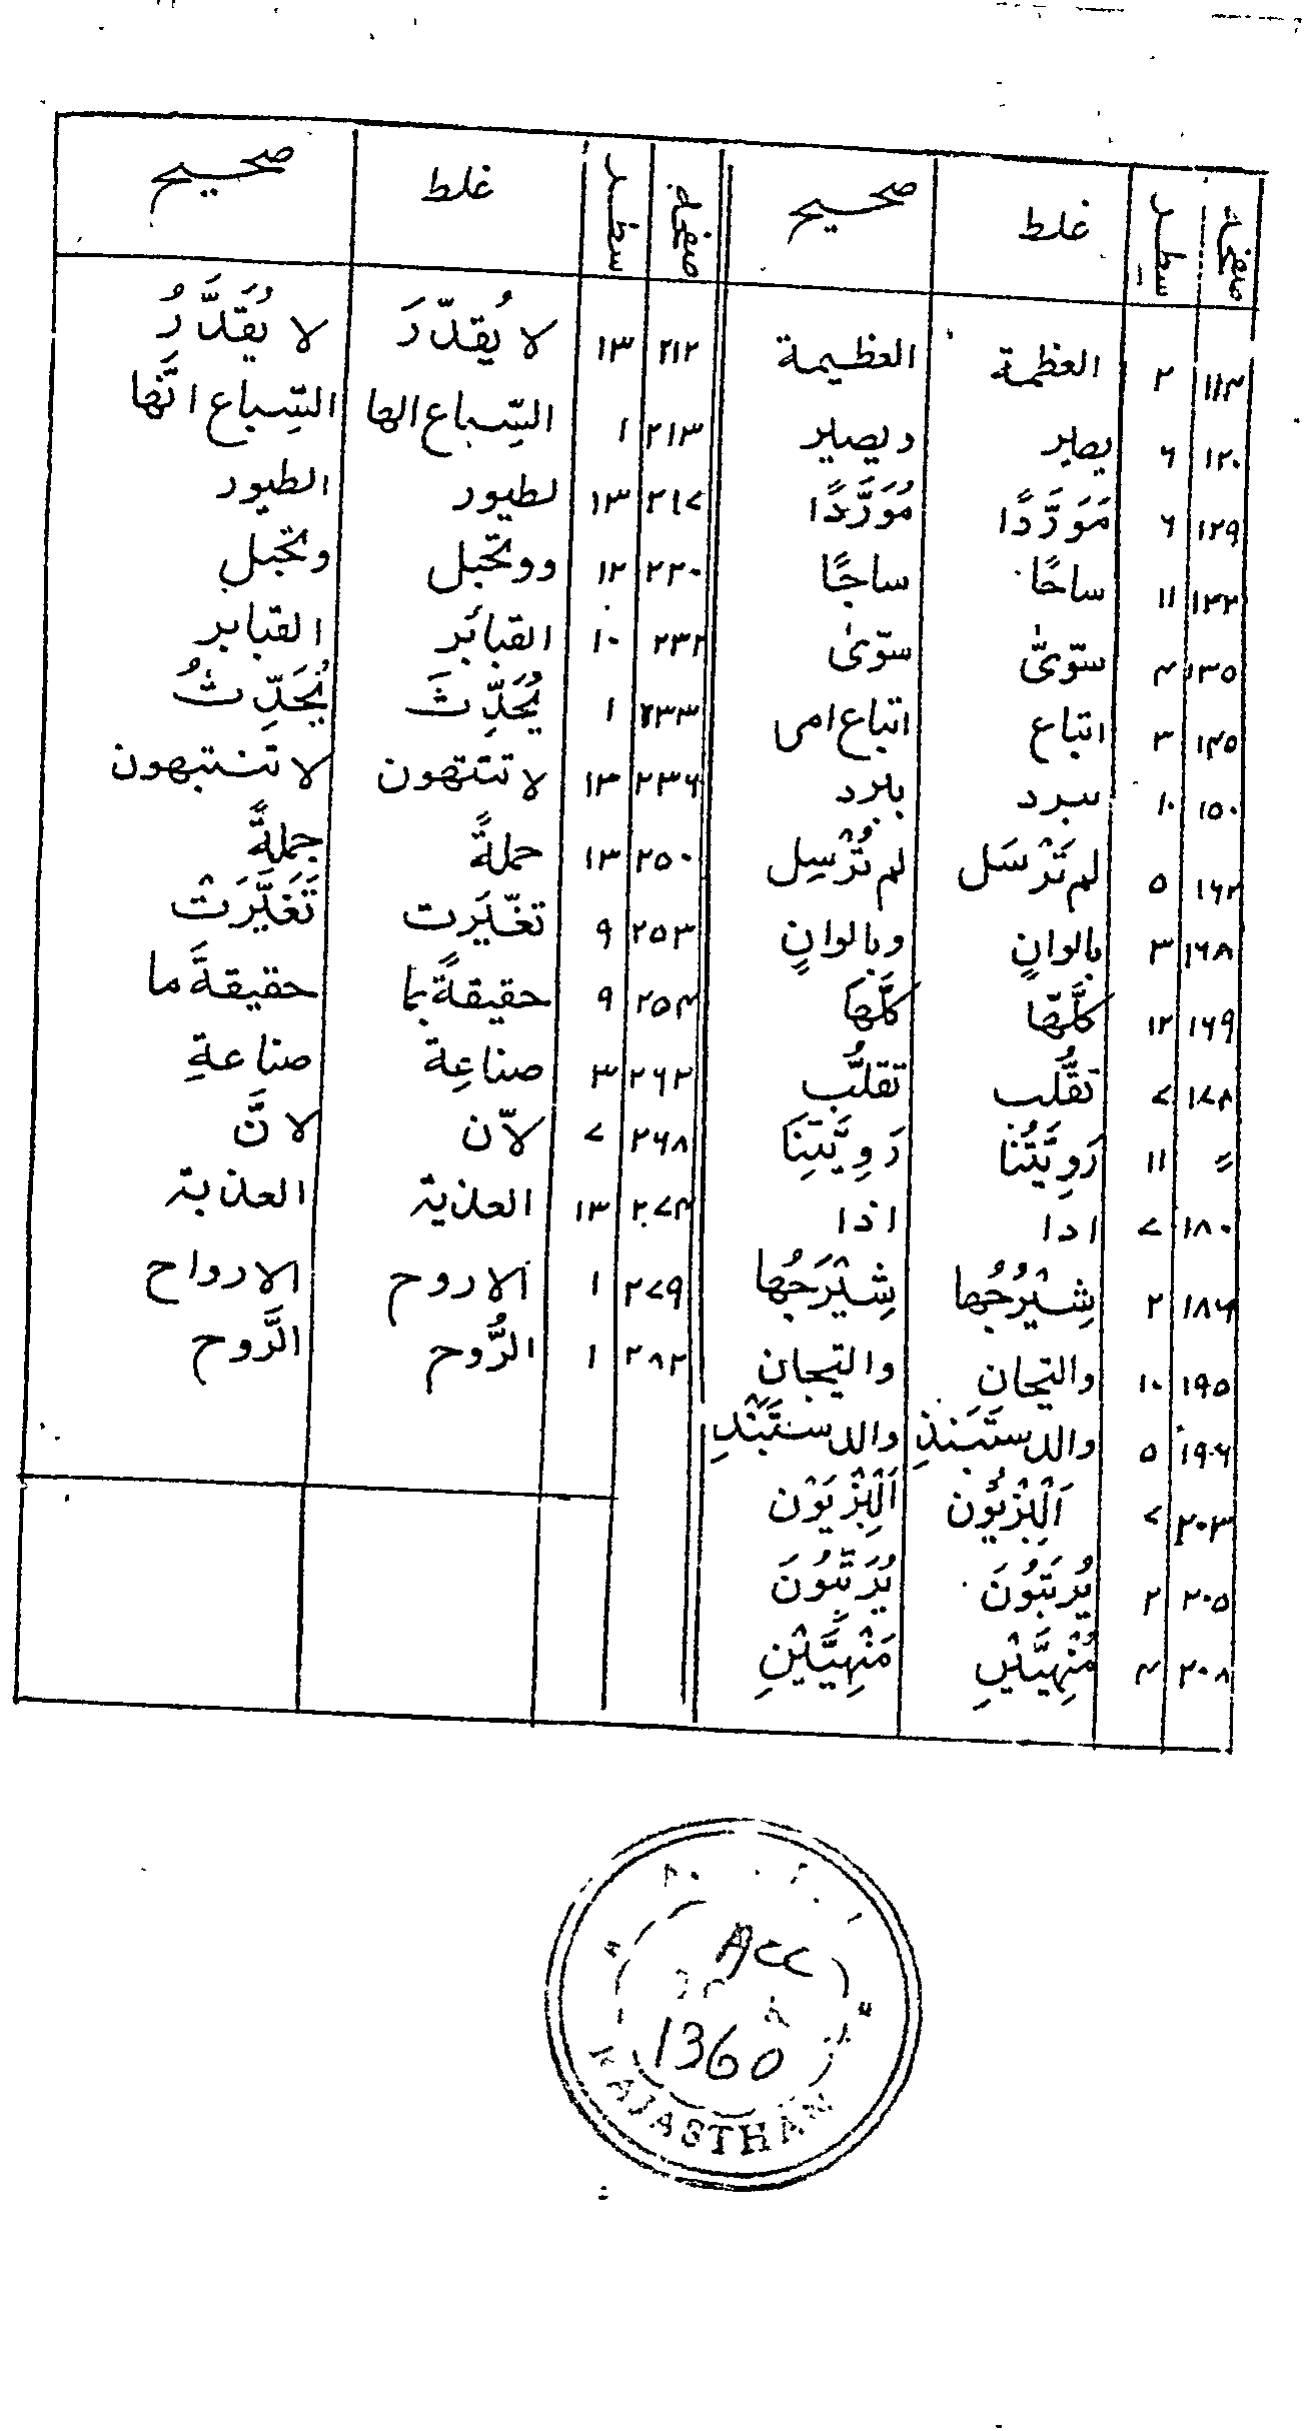 صفحہ سطر غلط صحیح
۱۱۴ ۲ العظمة العظیمة
۱۲۰ ۶ یصیر ویصیر
۱۲۹ ۶ مَوَرَّدًا مُوَرَّدًا
۱۳۲ ۱۱ ساحًا ساجًا
۱۳۵ ۴ سوّیٌ سوّیٰ
۱۴۵ ۳ اتباع اتباع امی
۱۵۰ ۱۰ سبرد ببرد
۱۶۲ ۵ لم تَرْسَل لم تُرْسِل
۱۶۸ ۳ بالوانٍ وبالوانٍ
۱۶۹ ۱۲ کلَّها کلَّها
۱۷۸ ۷ تقُّلب تقلُّب
۱۱ رَوِیَّتُنا رَوِیَّتِنَا
۱۸۰ ۷ ادا اذا
۱۸۶ ۲ شِیْرُجُها شِیْرَجُها
۱۹۵ ۱۰ والتیحان والتیجان
۱۹۶ ۵ والدستَبَنذِ والدستَبَنْدِ
۲۰۳ ۷ اَلْبِزْیُون اَلْبِزْیَوْن
۲۰۵ ۲ یُرتِبُونَ یُرَتِّبُونَ
۲۰۸ ۴ مُنْهِیَّیْنِ مَنْهِیَّیْنِ
صفحہ سطر غلط صحیح
۲۱۲ ۱۳ لا یُقدّرَ لا یُقَدَّرُ
۲۱۳ ۱ السِّباع الها السِّباع انَّها
۲۱۷ ۱۳ لطیور الطیور
۲۲۰ ۱۲ وونحّبل ونحّبل
۲۳۲ ۱۰ القبائر القبابر
۲۳۳ ۱ یُحَدِّثَ نُحَدِّثُ
۲۳۶ ۱۳ لا تنتهون لا تنتبهون
۲۵۰ ۱۳ حملةً جملةً
۲۵۳ ۹ تغیّرت تَغَیَّرَتْ
۲۵۴ ۹ حقیقةً بما حقیقةَ ما
۲۶۲ ۳ صناعِة صناعةِ
۲۶۸ ۷ لآّن لانَّ
۲۷۴ ۱۳ العذیة العذبة
۲۷۹ ۱ الاروح الارواح
۲۸۲ ۱ الرُّوح الرَّوح
Acc
1360
RAJASTHAN